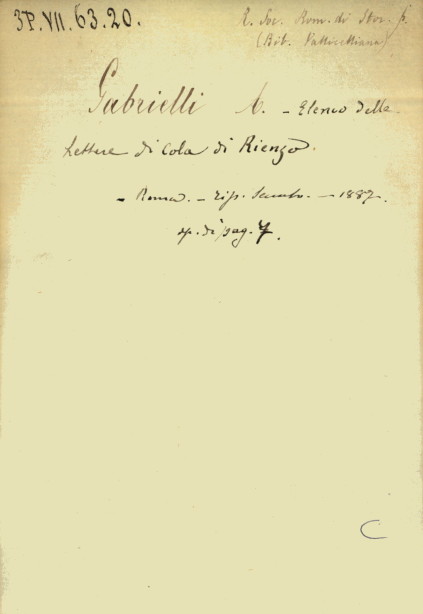 3P.VII.63.20.
R. Soc. Rom. di Stor. p.
(Bib. Vallicelliana)
Gabrielli A. - Elenco delle
Lettere di Cola di Rienzo.
- Roma. - Tip. - 1887.
op. di pag. 7.
C